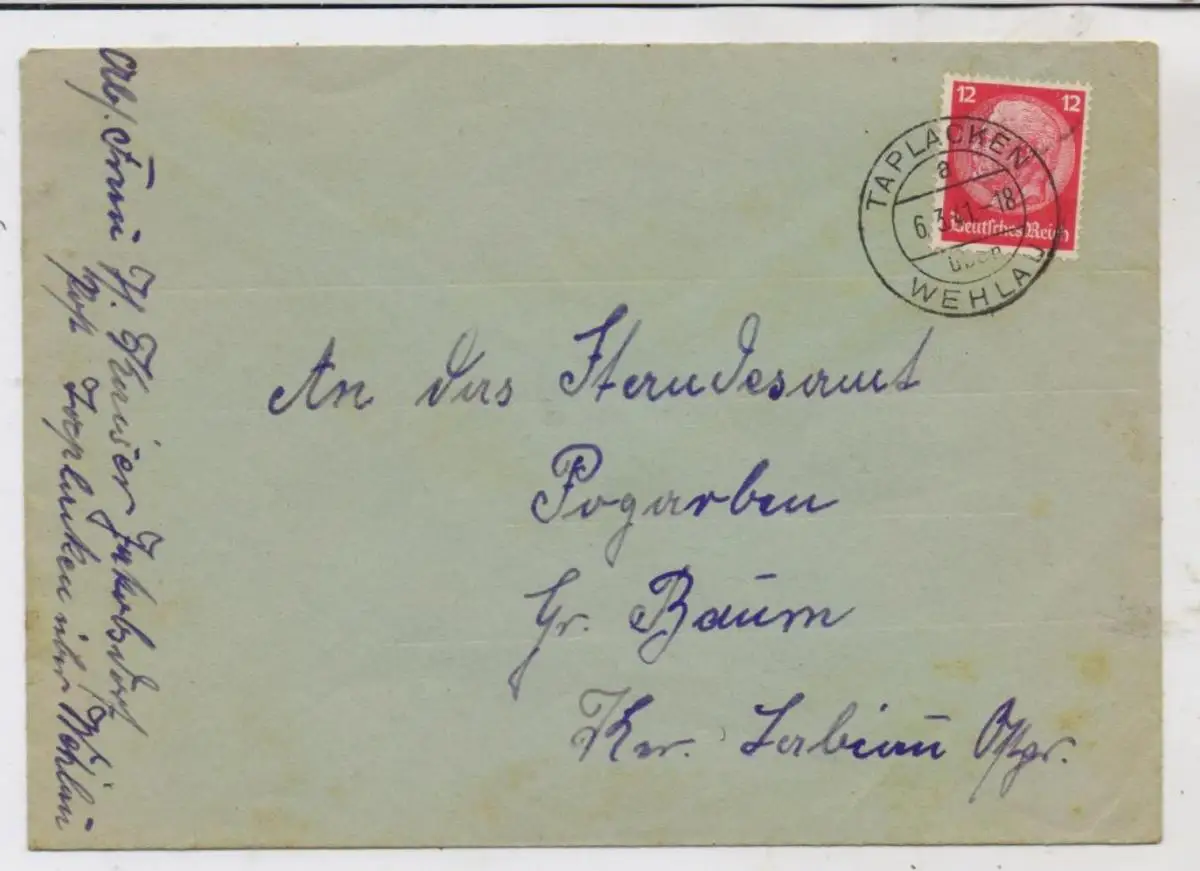 12 12
Deutsches Reich
TAPLACKEN
a
6.3.41.-18
über
WEHLAU
An das Standesamt
Pogarben
Gr. Baum
Kr. Labiau Ostpr.
Abs. Frau H. Jakobsdorf
Post Taplacken über Wehlau